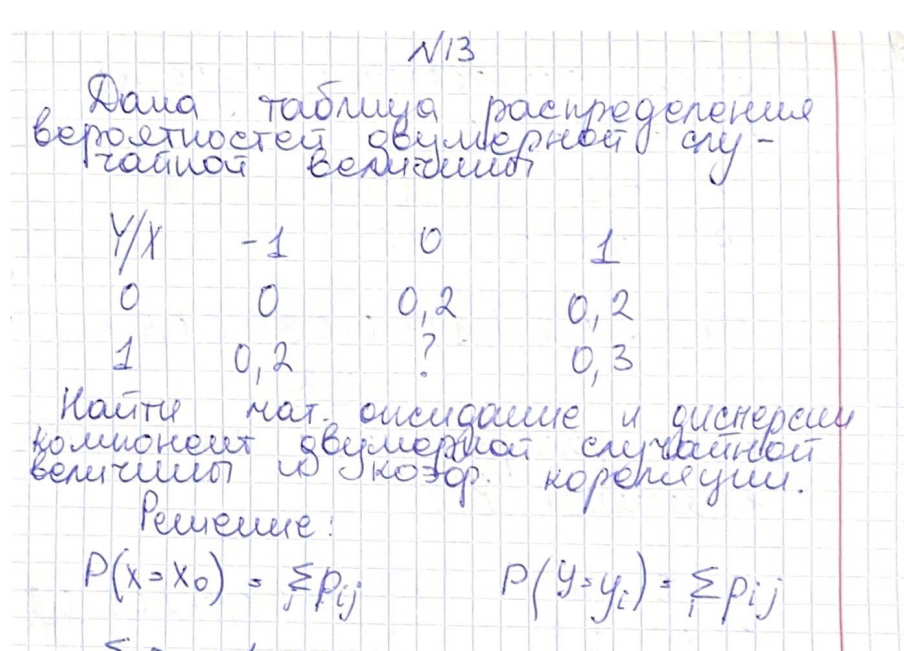 N13
Дана таблица распределения
вероятностей двумерной слу-
чайной величины
Y/X -1 0 1
0 0 0,2 0,2
1 0,2 ? 0,3
Найти мат. ожидание и дисперсии
компонент двумерной случайной
величины и коэф. корреляции.
Решение:
P(x=x₀) = Σ pij P(y=yi) = Σ pij